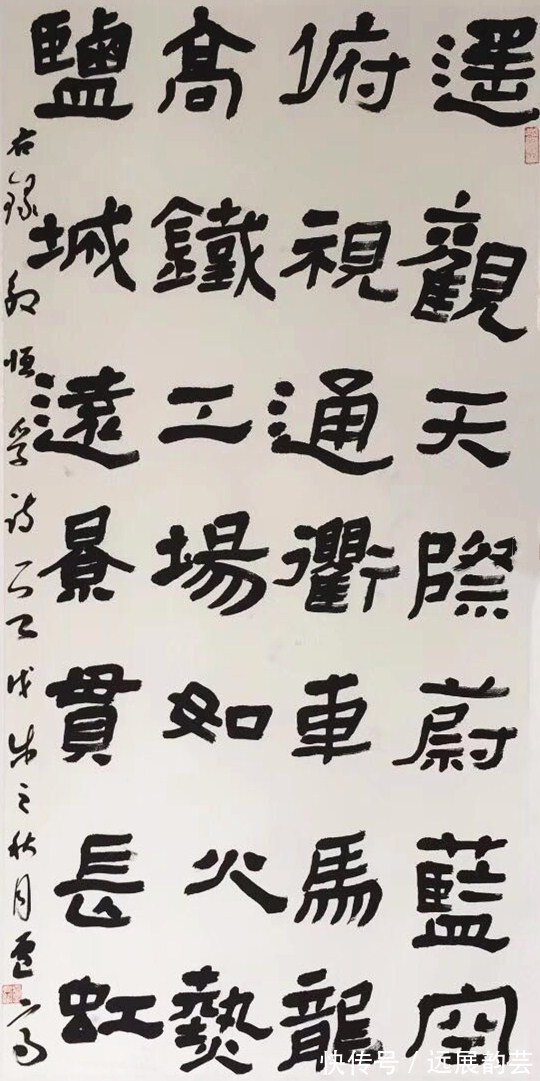 遙觀天際蔚藍空
俯視通衢車馬龍
髙鐵工場如火熱
鹽城遠景貫長虹
右錄 恒 诗 之秋月
快传号 / 远展韵芸